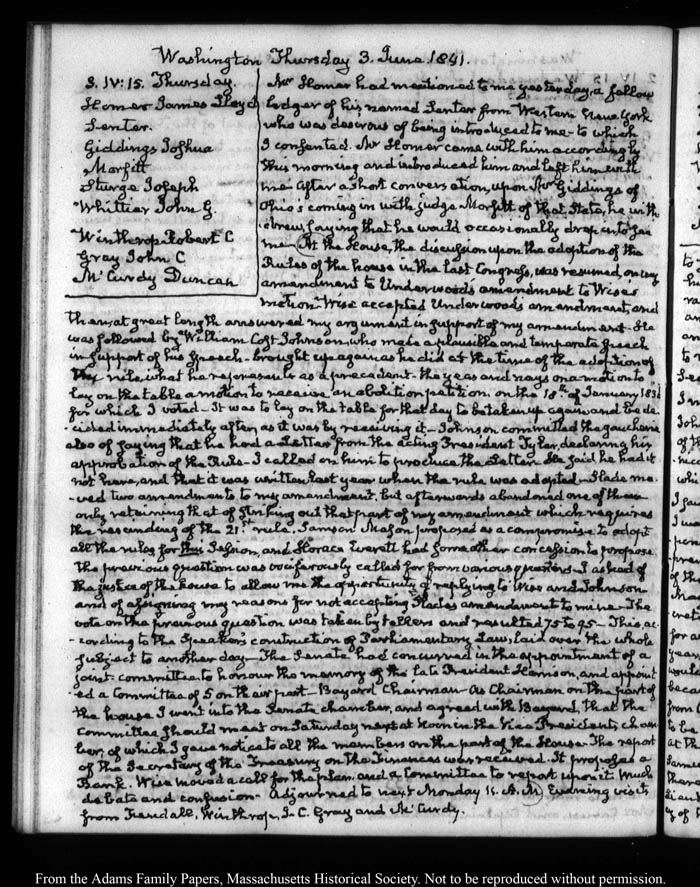 Washington Thursday 3. June 1841.
3. IV: 15. Thursday.
Homer James Lloyd
Senter.
Giddings Joshua
Morfitt
Sturge Joseph
Whittier John G.
Winthrop Robert C
Gray John C
McCurdy Duncan
Mr Homer had mentioned to me yesterday, a fellow
lodger of his, named Senter from Western New York
who was desirous of being introduced to me - to which
I consented. Mr Homer came with him accordingly
this morning and introduced him and left him with
me. After a short conversation, upon Mr Giddings of
Ohio's coming in with judge Morfitt of that State, he with
drew, saying that he would occasionally drop in to see
me. At the House, the discussion upon the adoption of the
Rules of the house in the last Congress, was resumed, on my
amendment to Underwoods amendment to Wise's
motion. Wise accepted Underwoods amendment, and
then at great length answered my argument in support of my amendment. He
was followed by William Cost Johnson, who made a plausible and temperate speech
in support of his speech - brought up again as he did at the time of the adoption of
the rule, what he represents as a precedent - the yeas and nays on a motion to
lay on the table a motion to receive an abolition petition on the 18th of January 183
for which I voted - It was to lay on the table for that day to be taken up again and be de-
cided immediately after, as it was by receiving it - Johnson committed the gaucherie
also of saying that he had a Letter from the acting President Tyler, declaring his
approbation of the Rule - I called on him to produce the Letter. He said he had it
not here, and that it was written last year when the rule was adopted - Slade mo-
-ved two amendments to my amendment, but afterwards abandoned one of them
only retaining that of striking out that part of my amendment which requires
the rescinding of the 21st rule. Samson Mason proposed as a compromise to adopt
all the rules for this Session, and Horace Everett had some other concession to propose.
The previous question was vociferously called for from various quarters - I asked of
the justice of the house to allow me the opportunity of replying to Wise and Johnson
and of assigning my reasons for not accepting Slades amendment to mine - The
vote on the previous question was taken by tellers and resulted 75 to 95 - This, ac-
-cording to the Speaker's construction of Parliamentary Law, laid over the whole
subject to another day - The Senate had concurred in the appointment of a
joint committee to honour the memory of the late President Harrison, and appoint
-ed a Committee of 5 on their part - Bayard Chairman. As Chairman on the part of
the house I went into the Senate chamber, and agreed with Bayard, that the
committee should meet on Saturday next at Noon in the Vice Presidents, cham
ber; of which I gave notice to all the members on the part of the House - The report
of the Secretary of the Treasury on the Finances was received. It proposes a
Bank. Wise moved a call for the plan, and a Committee to report upon it. Much
debate and confusion. Adjourned to next Monday 11. A.M. Evening visits
from Tensdall, Winthrop, J. C. Gray and McCurdy.
From the Adams Family Papers, Massachusetts Historical Society. Not to be reproduced without permission.